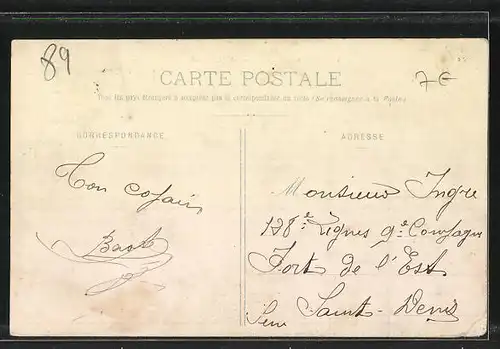 89
CARTE POSTALE
7 €
Tous les pays étrangers n'acceptent pas la correspondance au recto (Se renseigner à la Poste)
CORRESPONDANCE
ADRESSE
Ton copain
Monsieur Ingre
128e Lignes 9e Compagnie
Fort de l'Est
Saint-Denis